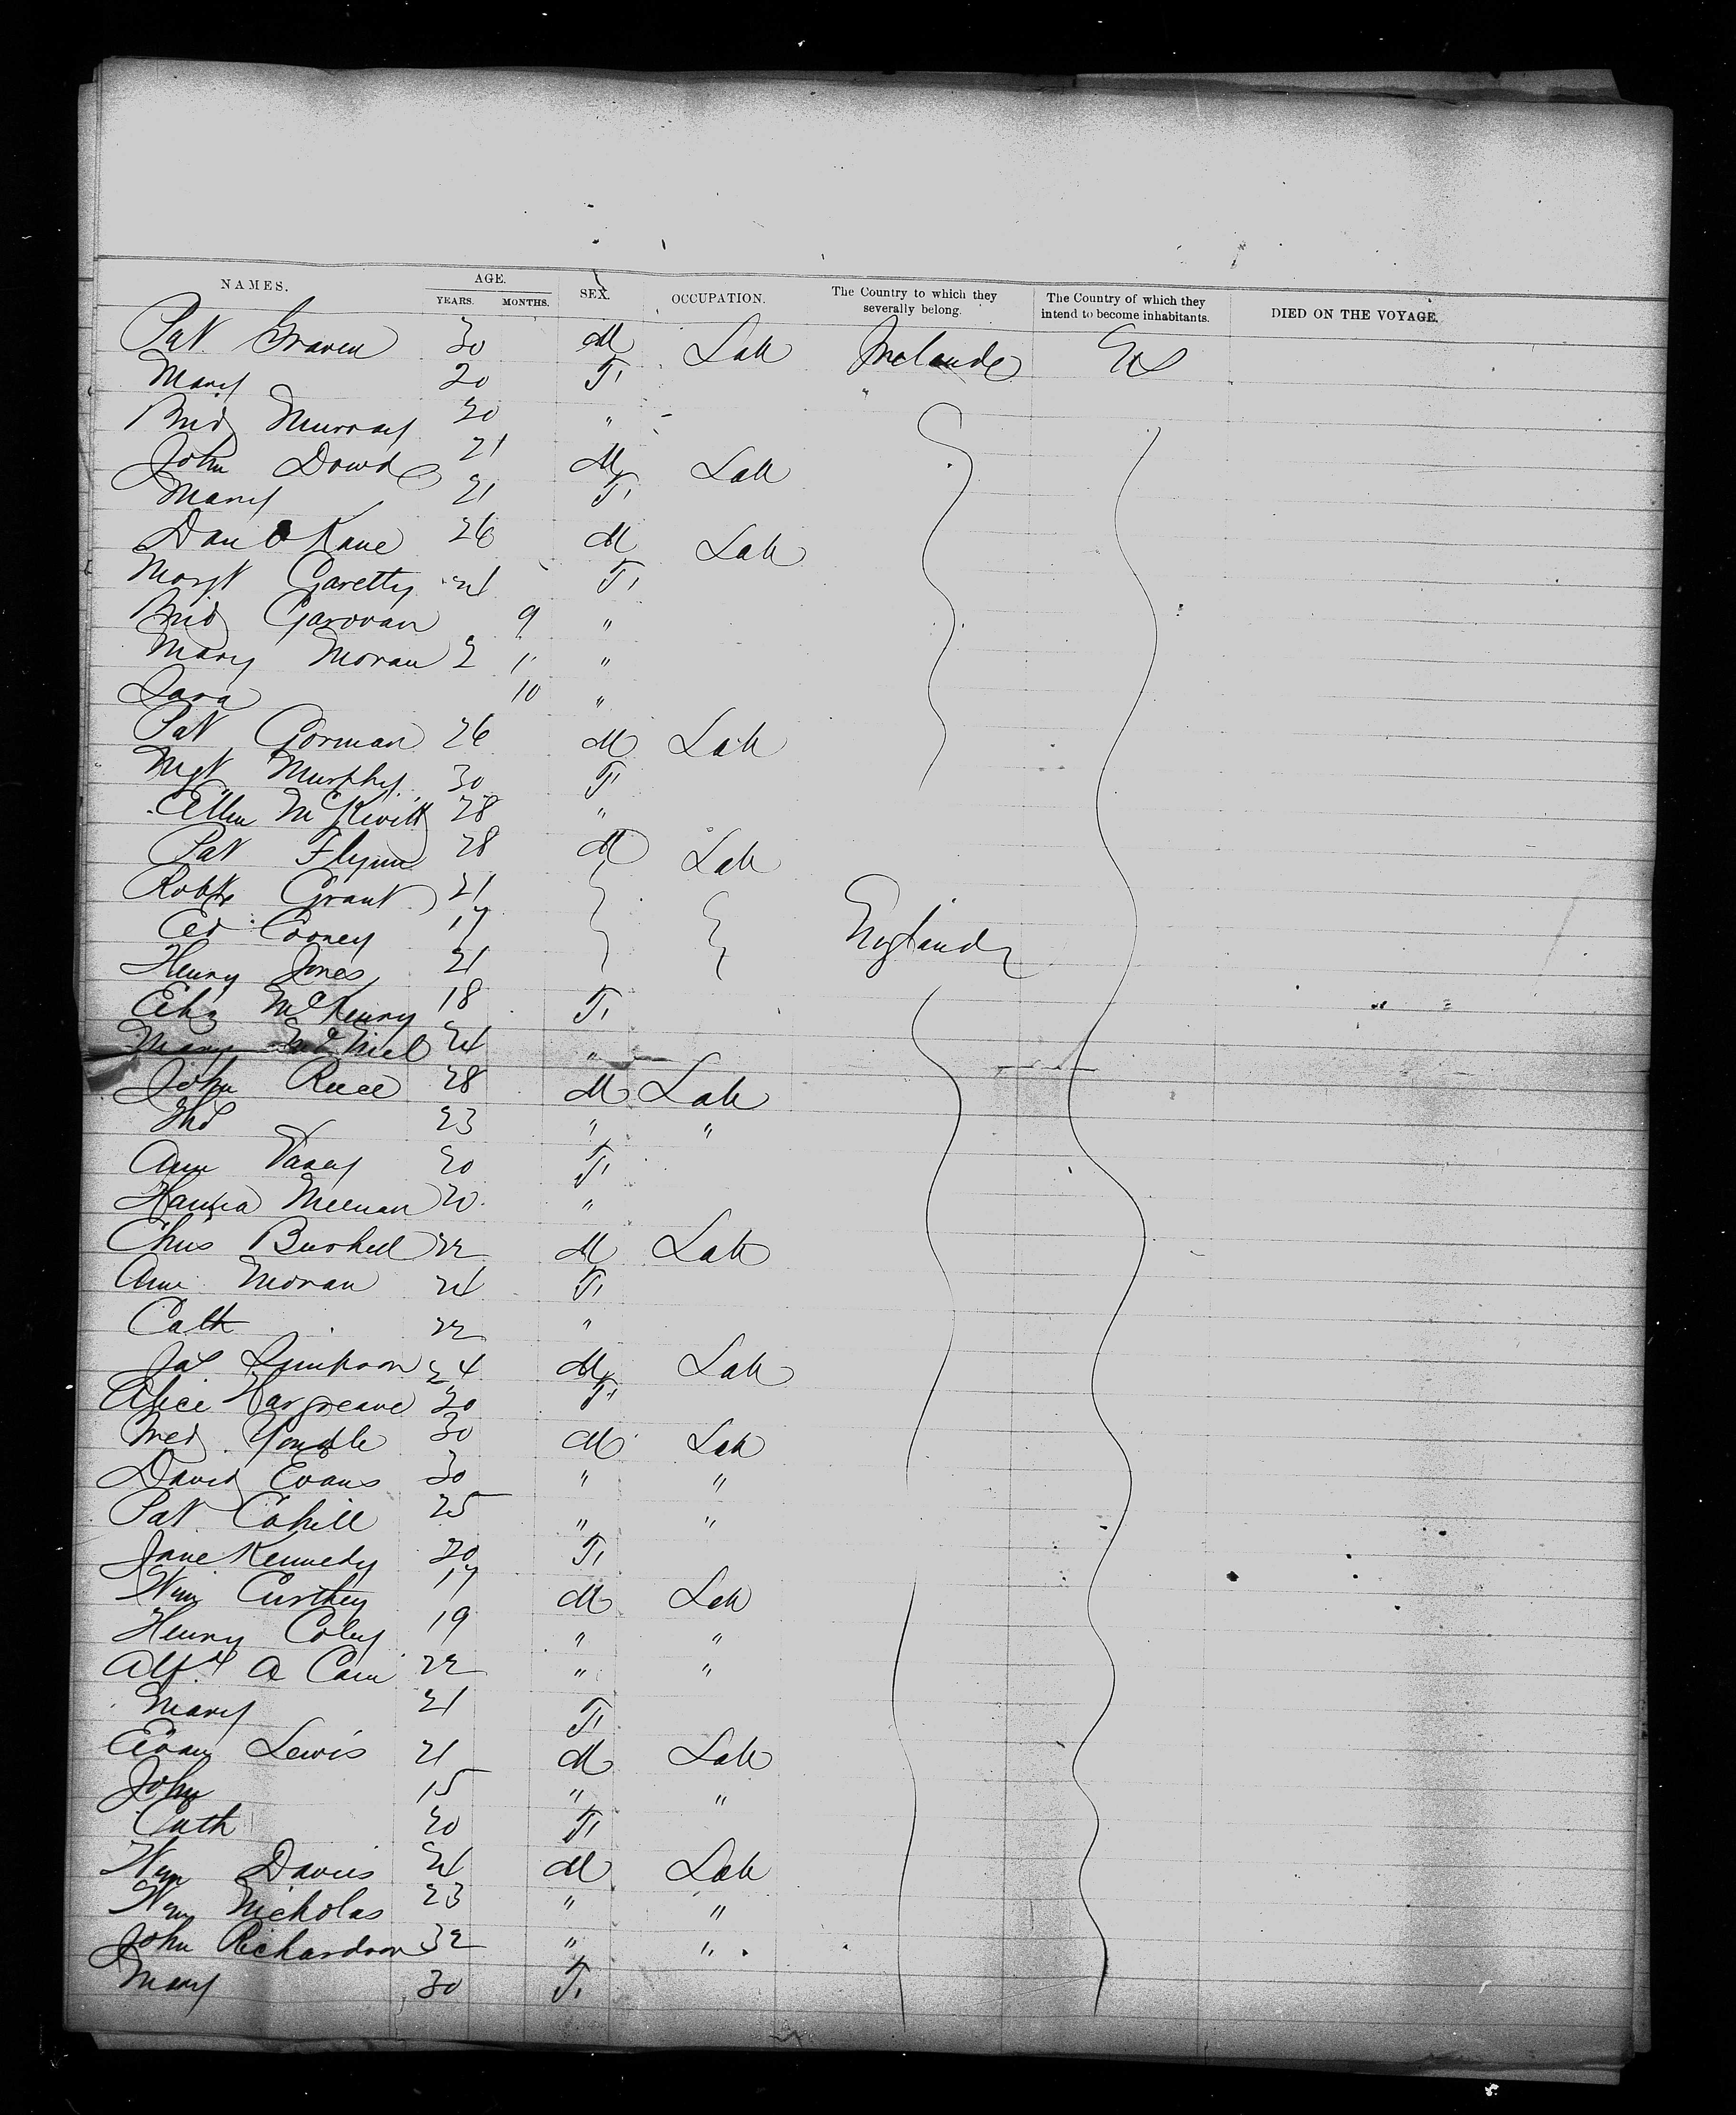 NAMES. AGE. YEARS. MONTHS. SEX. OCCUPATION. The Country to which they severally belong. The Country of which they intend to become inhabitants. DIED ON THE VOYAGE.
Pat Graven 30 M Lab Ireland
Mary 20 F "
Brid Murray 20 "
John Dowd 21 M Lab
Mary 21 F
Dan O Kane 26 M Lab
Margt Garetty 24 F
Brid Garovan 9 "
Mary Moran 2 " "
Sara 10 "
Pat Gorman 26 M Lab
Mgt Murphy 30 F
Ellen McKevitt 28 "
Pat Flynn 28 M Lab
Robt Grant 21
Ed Cooney 17 England
Henry Jones 21
Eliz McKenny 18 F
Mary McNiel 24 "
John Reece 28 M Lab
Thos 23 " "
Ann Vasey 20 F
Hanna Meenan 20 "
Chris Bushell 22 M Lab
Ann Moran 24 F
Cath 22 "
Jas Simpson 24 M Lab
Alice Hargreave 20 F
Fred 30 M Lab
David Evans 30 " "
Pat Cahill 25 " "
Jane Kennedy 20 F
Wm 17 M Lab
Henry Coley 19 " "
Alfd A Cain 22 " "
Mary 21 F
Evan Lewis 21 M Lab
John 15 " "
Cath 20 F
Wm Davis 24 M Lab
Wm Nicholas 23 " "
John Richardson 32 " "
Mary 30 F